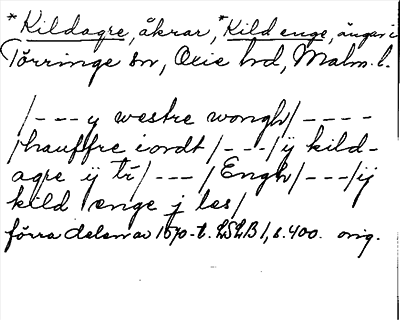 *Kildagre, åkrar, *Kild enge, ängar i
Törringe sn, Oxie hd, Malm. l.
/--- y westre wongh/----
/hauffre iordt/---/ij kild-
agre ij tr/---/Engh/---/ij
kild enge j les/
förra delen av 1570-t. LSLB 1, s. 400. orig.